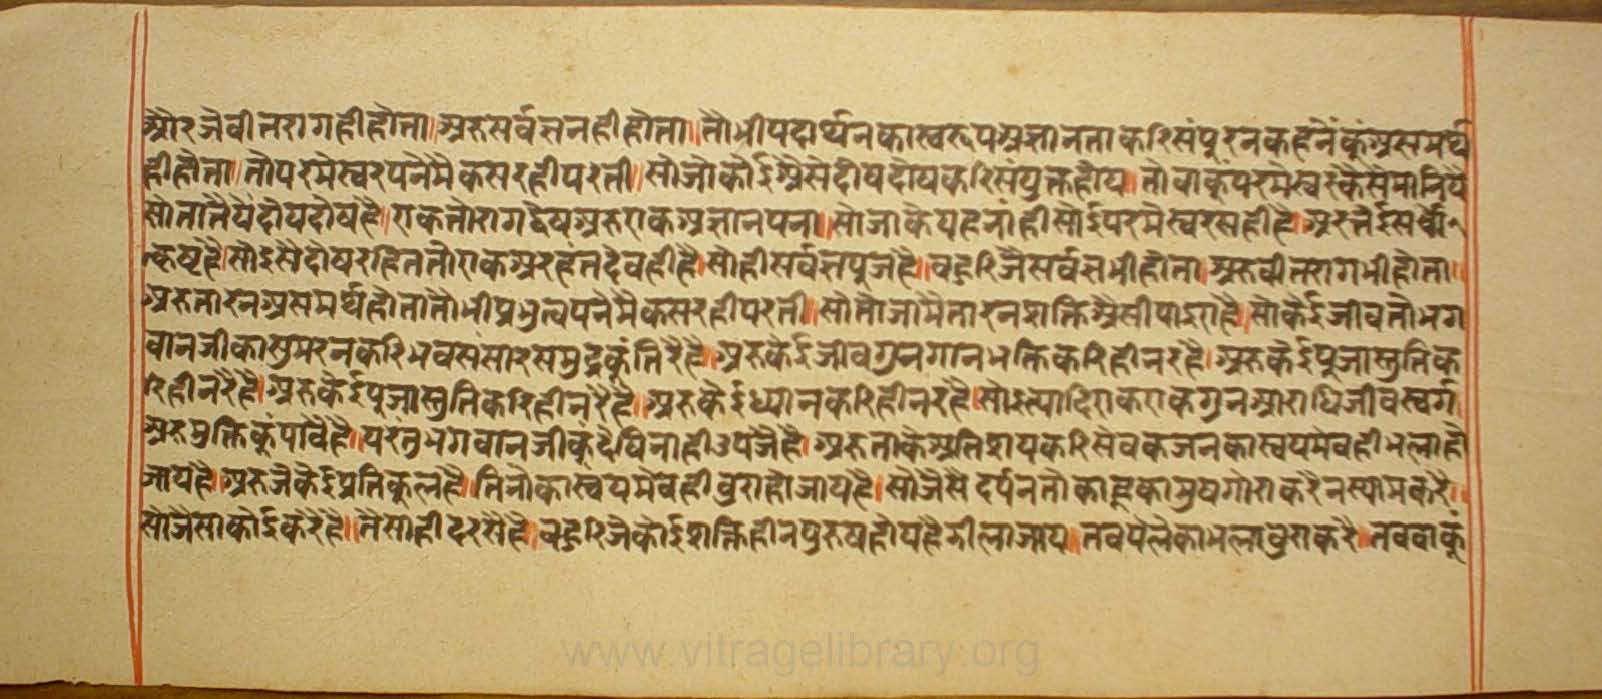 और जै वीतराग ही होता॥ अरु सर्वज्ञ नही होता॥ तौ भी पदार्थन का स्वरूप अज्ञानता करि संपुरन कहनै कुं असमर्थ
ही होता॥ तौ परमेस्वरपनै मै कसर ही परती॥ सो जो कोई अैसे दोष दोय करि संयुक्त होय॥ तो वाकुं परमेस्वर कैसे मानिये
सो तातै ये दोय दोष है। राक तो रागद्वेष अरु राक अज्ञानपना॥ सो जाकै ये हनां ही सोई परमेस्वर सही है॥ अर तेई सर्वो
त्कृष्ट है॥ सो इसे दोष रहित तो राक अरहंत देव ही है॥ सो ही सर्वज्ञ पुज है॥ बहुरि जै सर्वज्ञ भी होता॥ अरु वीतराग भी होता॥
अरु तारन असमर्थ होता तौ भी प्रभुत्वपनै मै कसर ही परती॥ सो तो जामै तारन शक्ति अैसी पाइरा है॥ सो केई जीव तो भग
वानजी का सुमरन करि भव संसार समुद्र कुं तिरै है॥ अरु केई जीव गुनगान भक्ति करि ही तरै है॥ अरु केई पुजा स्तुति क
रि ही तरै है॥ अरु केई पुजा स्तुति करि ही तरै है॥ अरु केई ध्यान करि ही तरै है॥ सो इत्यादि राक राक गुन आराधि जीव स्वर्ग
अरु मुक्ति कुं पावै है॥ परतु भगवानजी कुं षेद नाही उपजै है॥ अरु ताकै अतिशय करि सेवक जन का स्वयमेव ही भला हो
जाय है॥ अरु जै केई प्रतिकूल है॥ तिनो का स्वयमेव ही बुरा हो जाय है॥ सो जैसे दर्पन तो काहू का मुष गोरा करै न स्याम करै॥
सो जैसा कोई करै है॥ तैसा ही दरसै है॥ बहुरि जै कोई शक्तिहीन पुरुष होय है जीला जाय॥ तब पैलै का भला बुरा करै॥ तब वाकूं
www.vitragelibrary.org